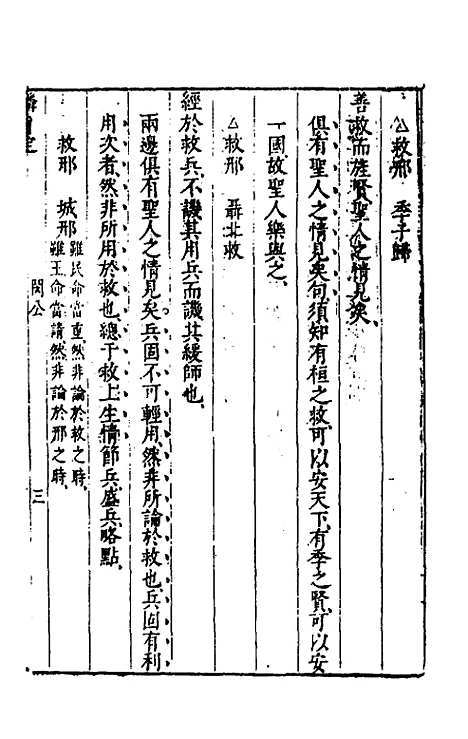 △救邢　季子歸
善救而旌賢聖人之情見矣
俱有聖人之情見矣句須知有桓之救可以安天下有季之賢可以安
一國故聖人樂與之
△救邢　聶北救
經於救兵不譏其用兵而譏其緩師也
兩邊俱有聖人之情見矣兵固不可輕用然非所論於救也兵固有利
用次者然非所用於救也總于救上生情節兵盛兵略點
救邢　城邢
雖民命當重然非論於救之時
雖王命當請然非論於邢之時
閔公
三